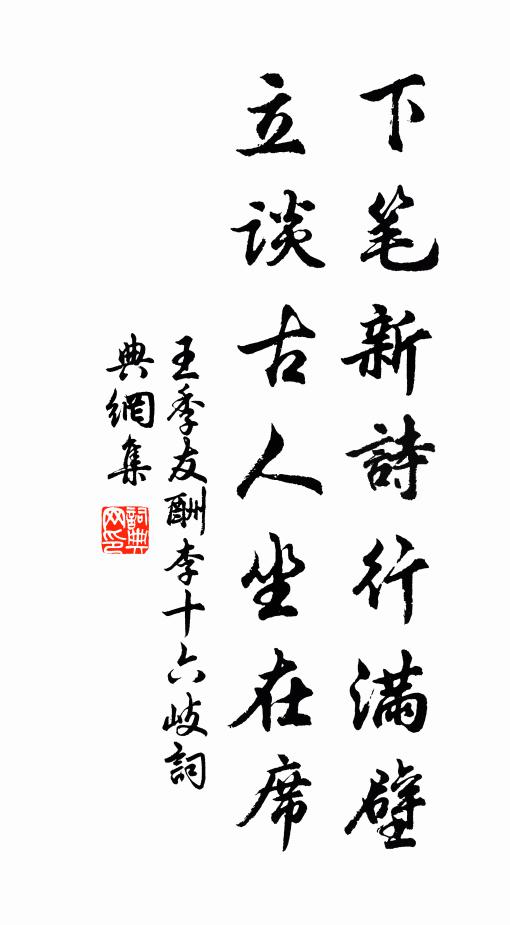 下笔新詩行满壁
立谈古人坐在席
王季友酬李十六岐詞
典網集
詞典网印